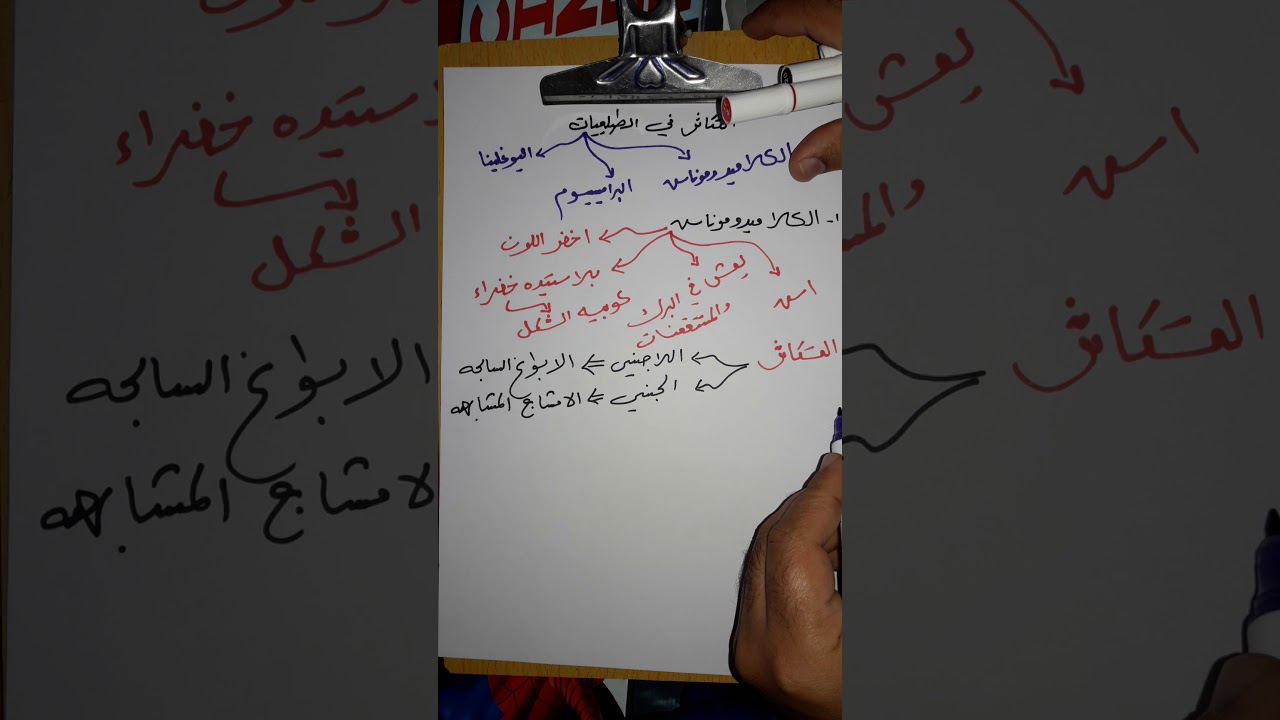 التكاثر في الطلعيات
الكلاميدوموناس
البراميسيوم
اليوغلينا
١- الكلاميدوموناس
اخضر اللون
بلاستيده خضراء
كوبيه الشكل
يعش في البرك
والمستنقعات
اسي
التكاثر
اللاجنسي ⇐ الابواغ السابحه
الجنسي ⇐ الامشاج المتشابهه